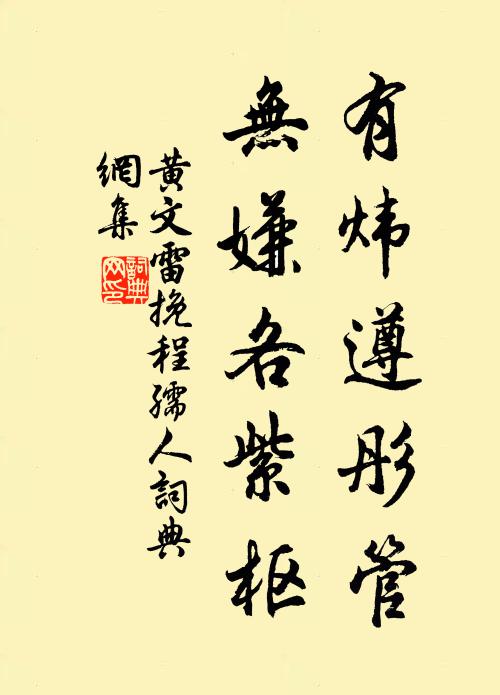 有炜遵彤管
無嫌各紫枢
黄文雷挽程孺人詞典
網集
詞典網印